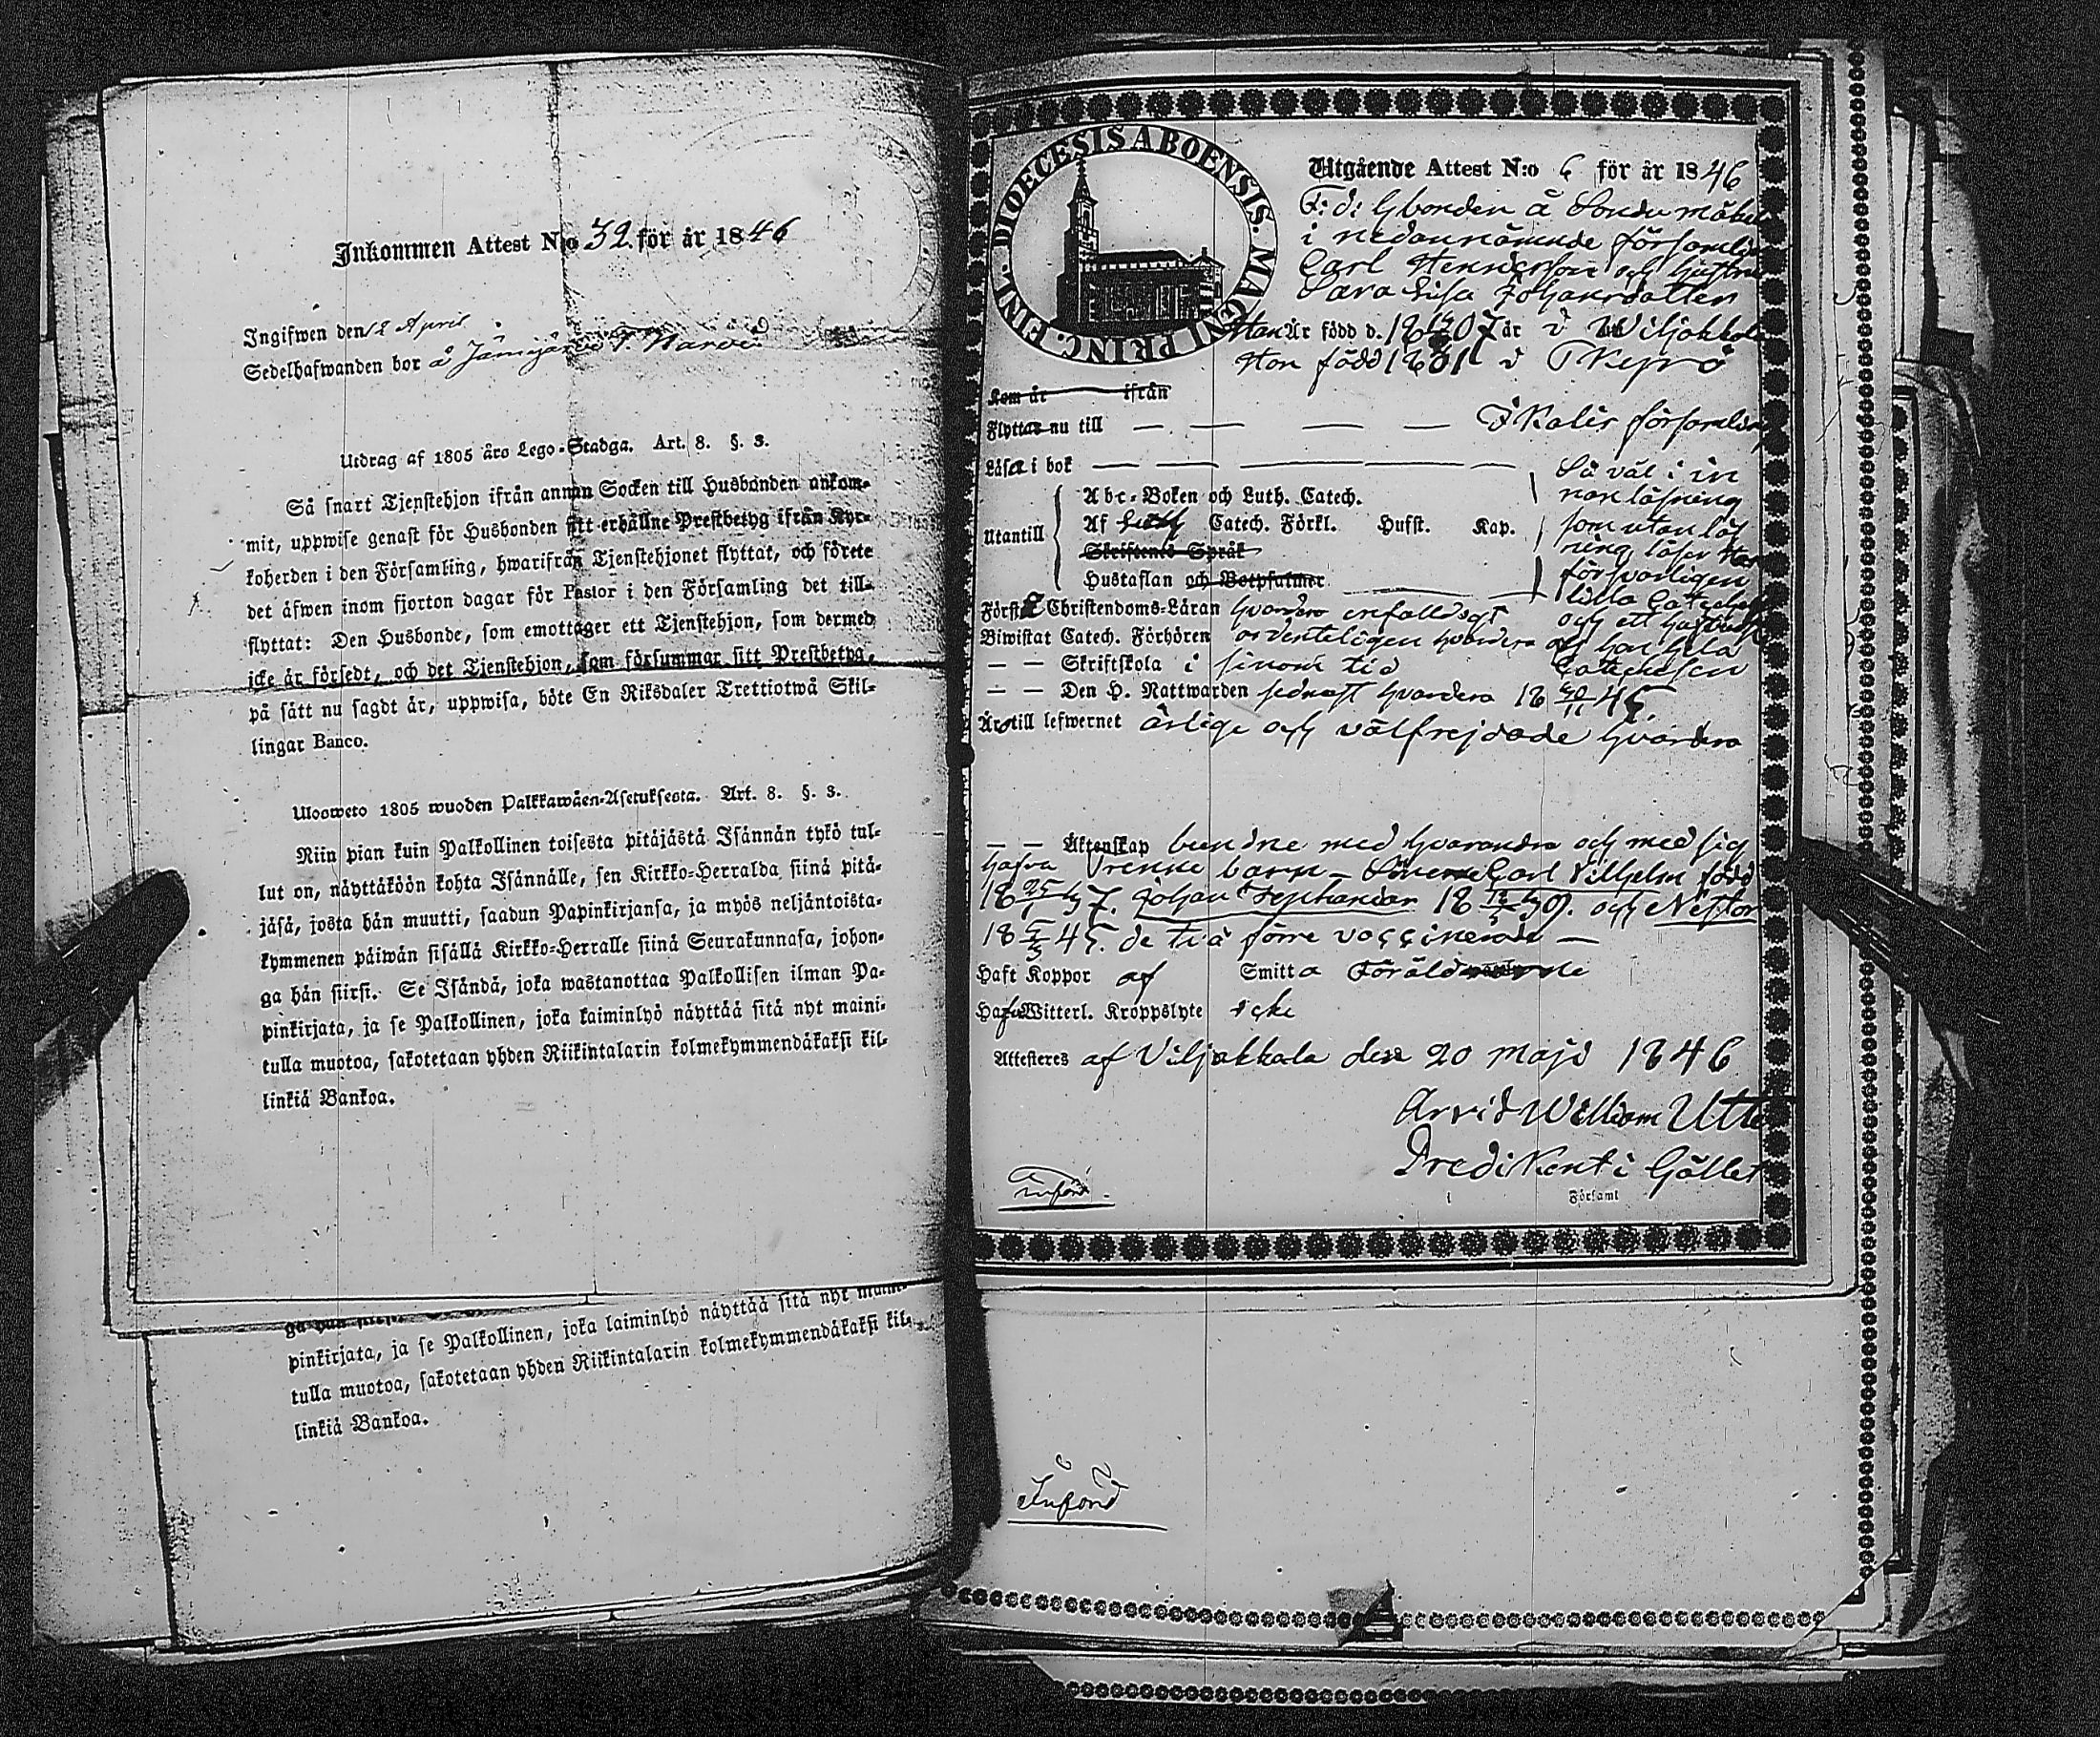 Inkommen Attest N:o 32 för år 1846
Ingifwen den 12 April
Sedelhafwanden bor å
Utdrag af 1805 års Lego-Stadga. Art. 8. §. 3.
Så snart Tjenstehjon ifrån annan Socken till Husbonden ankom-
mit, uppwise genast för Husbonden sitt erhållne Prestbetyg ifrån Kyr-
koherden i den Församling, hwarifrån Tjenstehjonet flyttat, och förete
det äfwen inom fjorton dagar för Pastor i den Församling det till-
flyttat: Den Husbonde, som emottager ett Tjenstehjon, som dermed
icke är försedt, och det Tjenstehjon, som försummar sitt Prestbetyg,
på sätt nu sagdt är, uppwisa, böte En Riksdaler Trettiotwå Skil-
lingar Banco.
Ulosweto 1805 wuoden Palkkawäen-Asetuksesta. Art. 8. §. 3.
Niin pian kuin Palkollinen toisesta pitäjästä Isännän tykö tul-
lut on, näyttäköön kohta Isännälle, sen Kirkko-Herralda siinä pitä-
jäsä, josta hän muutti, saadun Papinkirjansa, ja myös neljäntoista-
kymmenen päiwän sisällä Kirkko-Herralle siinä Seurakunnasa, johon-
ga hän siirsi. Se Isändä, joka wastanottaa Palkollisen ilman Pa-
pinkirjata, ja se Palkollinen, joka laiminlyö näyttää sitä nyt maini-
tulla muotoa, sakotetaan yhden Riikintalarin kolmekymmendäkaksi kil-
linkiä Bankoa.
pinkirjata, ja se Palkollinen, joka laiminlyö näyttää sitä nyt maini-
tulla muotoa, sakotetaan yhden Riikintalarin kolmekymmendäkaksi kil-
linkiä Bankoa.
DIOECESIS ABOENSIS. MAGNI PRINC. FINL.
Utgående Attest N:o 6 för år 1846
F: d: Gbonden å
i nedannämnde församling
Carl Henricsson och hustru
Sara Lisa Johansdotter
Han är född d. 1807 i Wiljakkala
Hon född 1801 i Tkyrö
Kom år ifrån
Flyttar nu till — — — — Ikalis församling
Läsa i bok — — — —
Så väl i in
nan läsning
som utan läs
ning läser Han
försvarligen
lilla Catechesen
och ett
och han hela
Catechesen
Utantill
Abc-Boken och Luth. Catech.
Af Luth Catech. Förkl. Husst. Kap.
Skriftenes Språk
Hustaflan och Botpsalmer
Förstå Christendoms-Läran hvardera enfalldigt
Biwistat Catech. Förhören ordenteligen hvardera
— — Skriftskola i sinom tid
— — Den H. Nattwarden sednast hvardera 18 30/11 45.
Äro till lefwernet ärlige och välfrejdade hvardera
— — Äktenskap bundne med hvarandra och med sig
hafva trenne barn — Carl Vilhelm född
18 25/1 37. Johan 18 39. och Nestor
18 5/3 45. de två förre vaccinerade —
Haft Koppor af Smitta
Hafva Witterl. Kroppslyte icke
Attesteras af Viljakkala den 20 maji 1846
Arvid William
Predikant i Gället
Församl
Införd.
Införd